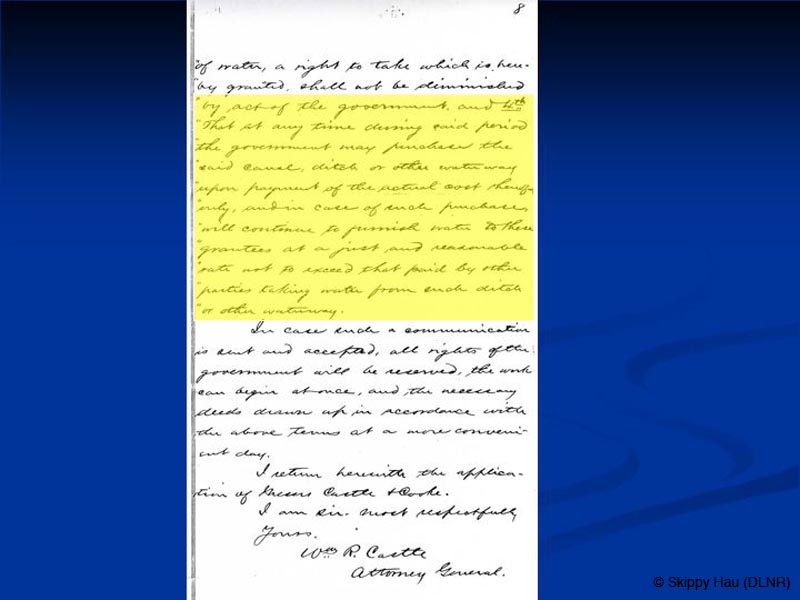 8
"of water, a right to take which is here-
"by granted, shall not be diminished
"by act of the government, and 4th
"That at any time during said period
"the government may purchase the
"said canal, ditch or other waterway
"upon payment of the actual cost thereof
"only, and in case of such purchase,
"will continue to furnish water to these
"grantees at a just and reasonable
"rate not to exceed that paid by other
"parties taking water from such ditch
"or other waterway.
In case such a communication
is sent and accepted, all rights of the
government will be reserved, the work
can begin at once, and the necessary
deeds drawn up in accordance with
the above terms at a more conveni-
ent day.
I return herewith the applica-
tion of Messrs Castle & Cooke.
I am sir. most respectfully
Yours.
Wm R. Castle
Attorney General.
© Skippy Hau (DLNR)